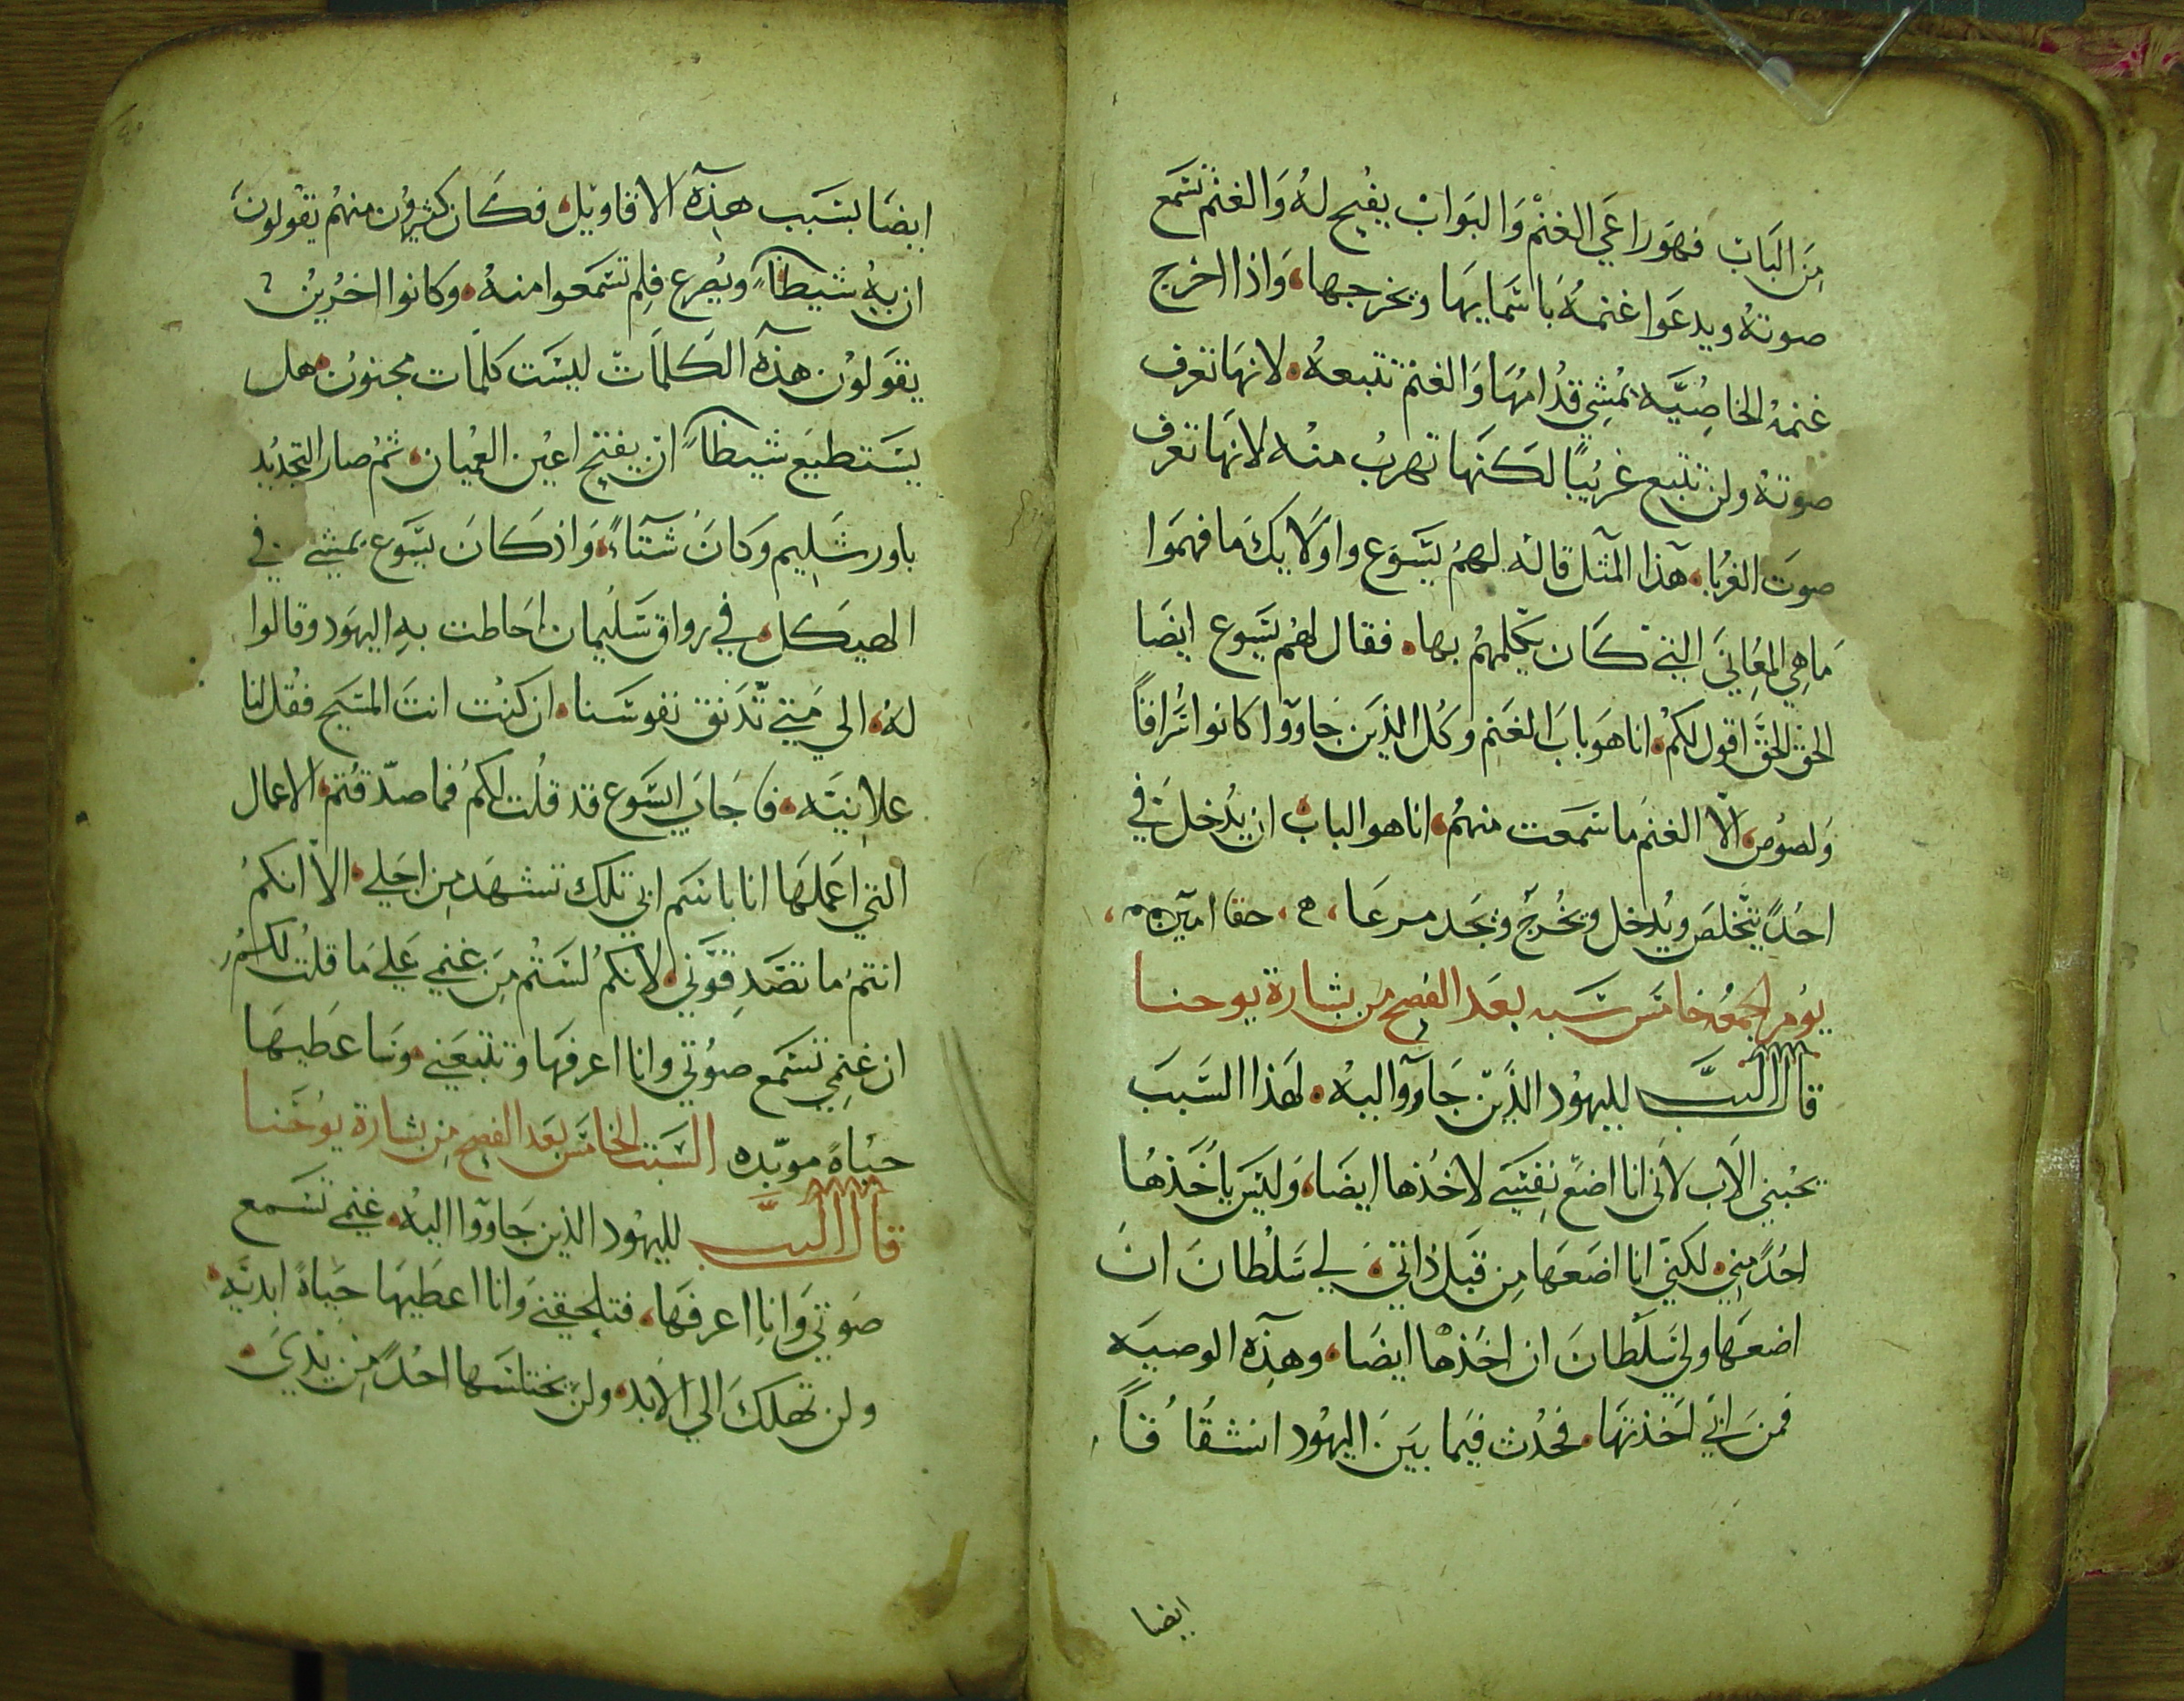 مِنَ البَابْ فهوَ راعَي الغنمْ وَالبَوابْ يفُتِح لهُ وَالغنمْ تسَمَع
صوتهُ ويدعَوا غنمهُ بَاسَمايهَا ويخرجها، وَاذا اخرج
غنمهُ الخاصِيَّه يمُشِي قدُامهَا وَالغنمْ تتبعهُ، لانهَا تعَرف
صوتهُ ولن تتبع غَريبًا لكنها تهربُ منهُ لانهَا تعَرف
صوتَ الغرُبا، هَذا المَثل قاله لهمُ يسَوَع واولَايكَ مَا فهمَوا
مَا هِي المعَانِيَ التيْ كَان يكلمهُم بها، فقال لهُم يسَوع ايضَا
الحقَ الحقَّ اقول لكمُ، انا هوَ بابَ الغنم وكل الذيَن جَاووا كانوا سُراقاً
وَلصوُص، الّا الغنَم ما سَمعت منهمُ، انا هو البابْ ان يدُخل فيَّ
احُدً يتخلصَ ويُدخل ويخُرجُ ويجَد مرعَا، م، حقا امين م م،
يوُم الجمعُه خامسَ سَبه بعَد الفصِح مِن بشارة يوحنا
قال الربّ لليهُود الذَّين جَاووا اليهُ، لهَذا السَبب
يحَبنيِ الاَب لانَي انا اضَع نفِسَي لاخُذها ايضَا، وَليسَ ياخَذهُا
احُدً مِنيِ، لكنيّ انا اضَعَها مِن قبَل ذاتَي، لي سَلطانَ انَ
اضعَها ولي سَلُطانَ ان اخَذها ايضَا، وهذِه الوصيَه
فمنَ ابَي اَخذتهَا، فحُدث فيمَا بيَن اليهُود انشقُاقاً
ايضا
ايضَا بسَبَب هذِه الاقاويَل، فكَان كثيروُن منهمُ يقَولونَ
ان بهِ شَيطاناً ويُصرع فلِمَ تسَمعَوا منهُ، وكانوا اخرُينْ
يقَولوُن هذَه الكَلمَات ليسَت كلمَات مجنونُ، هل
يسَتطيَع شَيطاناً ان يفتِح اعيُن العمُيان، ثمُ صار التجدُيد
باورشَليِم وكانَ شَتاءً، وَاذ كَانَ يسَوع يمشَي في
الهيَكل في رواق سَليُمان احَاطت بهِ اليهَود وقالوا
لهُ، الي مَتي تدَنق نفوسَنا، ان كنُت انتَ المسَيح فقُل لنا
علانيَه، فاَجَاب يسَّوع قد قلُت لكمُ فما صدّقتُم، الاعمال
التي اعَملهَا انا باسَم ابَي تلك تشهَد مِن اجَلي، الّا انكمُ
انتمُ ما تصَدِقوَني، لانَكمُ لسَتُم مِن غنَمي عَلي مَا قلتُ لكمُ
ان غنِمي تسَمع صوُتي وانا اعرفهَا وتتبعَني، وسَاعَطيهَا
حيُاةً موبّده السَبت الخامسَ بعَد الفصِح مِن بشارة يوُحَنا
قال الربّ لليهُود الذين جَاووا اليهُ، غنمي تسَمع
صَوتي وَانا اعرفهَا، فتلِحقني وَانا اعطيَهَا حَياةً ابديَّه
ولن تهَلكَ الي الابَد، ولن يختلسَها احُدً مِن يدَيَ